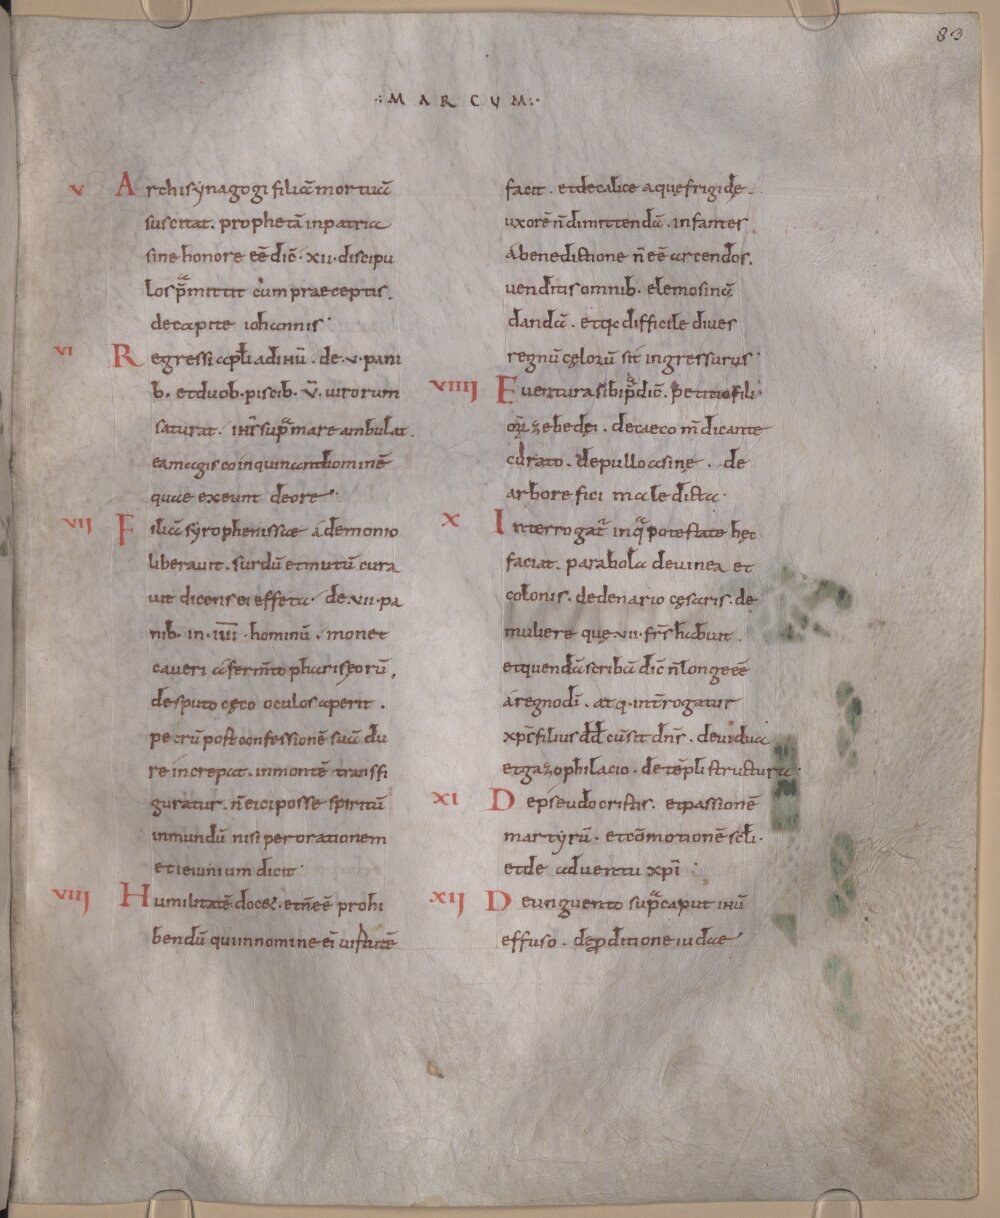 83
·:MARCVM:·
V Archisynagogi filiā mortuā
suscitat. prophetā inpatria
sine honore eē dic̄. XII. discipu
los p̄mittit cum praeceptis.
decapite iohannis.
VI Regressi apl̄i ad ih̄ū. de. V. pani
b. et duob. piscib. V̄. uirorum
saturat. ih̄s supra mare ambulat.
ea magis coinquinant hominē
quae exeunt de ore.
VII Filiā syrophenissae a demonio
liberauit. surdū et mutū cura
uit dicens ei effeta. de. VII. pa
nib. in. IIII. hominū. monet
caueri a ferm̄to phariseorū,
desputo cęco oculos aperit.
petrū post confessionē suā du
re increpat. in monte transfi
guratur. n̄ eici posse spiritū
inmundū nisi per orationem
et ieiunium dicit.
VIII Humilitatē docet. et n̄ eē prohi
bendū qui in nomine ei uirtutē
facit. et de calice aquę frigidę.
uxorē n̄ dimittendā. infantes
a benedictione n̄ eē arcendos.
uenditis omnib. elemosinā
dandā. et q̄ difficile diues
regnū cęlorū sit ingressurus.
VIIII Euentura sibi p̄dic̄. petitio fili
orū zebedei. de caeco m̄dicante
curato. de pullo asinę. de
arbore fici maledicta.
X Interrogat̄ in q̄ potestate hęc
faciat. parabola de uinea et
colonis. de denario cęsaris. de
muliere quę. VII. fr̄s habuit.
et quendā scribā dic̄ n̄ longe eē
a regno dī. atq. int̄rogatur
xp̄s filius dd̄ cū sit dn̄s. de uidua
et gazophilacio. de tēpli structura.
XI De pseudocristis. et passionē
martyrū. et cōmotionē scl̄i.
et de aduentu xp̄i
XII De unguento supra caput ih̄ū
effuso. de p̄ditione iudae